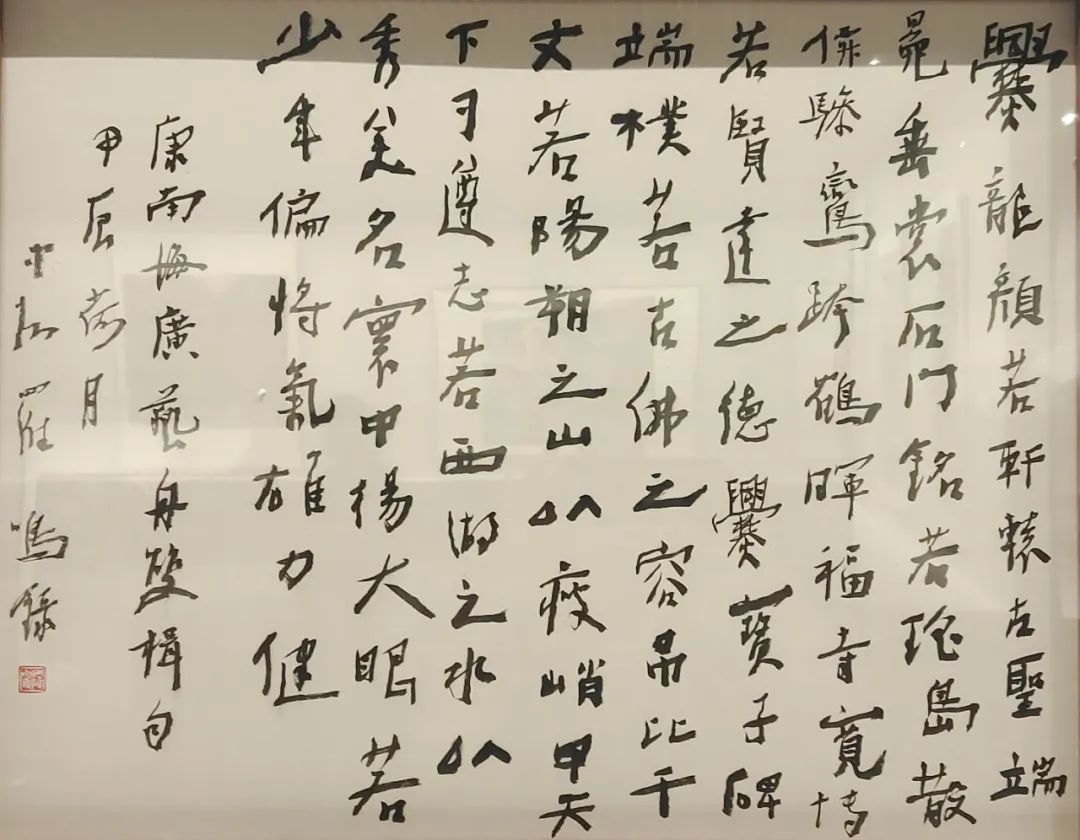 爨龍顔若軒轅古聖端
冕垂裳石門銘若瑤島散
僊驂鸞跨鶴暉福寺寬博
若賢達之德爨寶子碑
端樸若古佛之容吊比干
文若陽朔之山以瘦峭甲天
下刁遵志若西湖之水以
秀美名寰中楊大眼若
少年偏將氣雄力健
康南海廣藝舟雙楫句
甲辰荷月
羅鳴錄